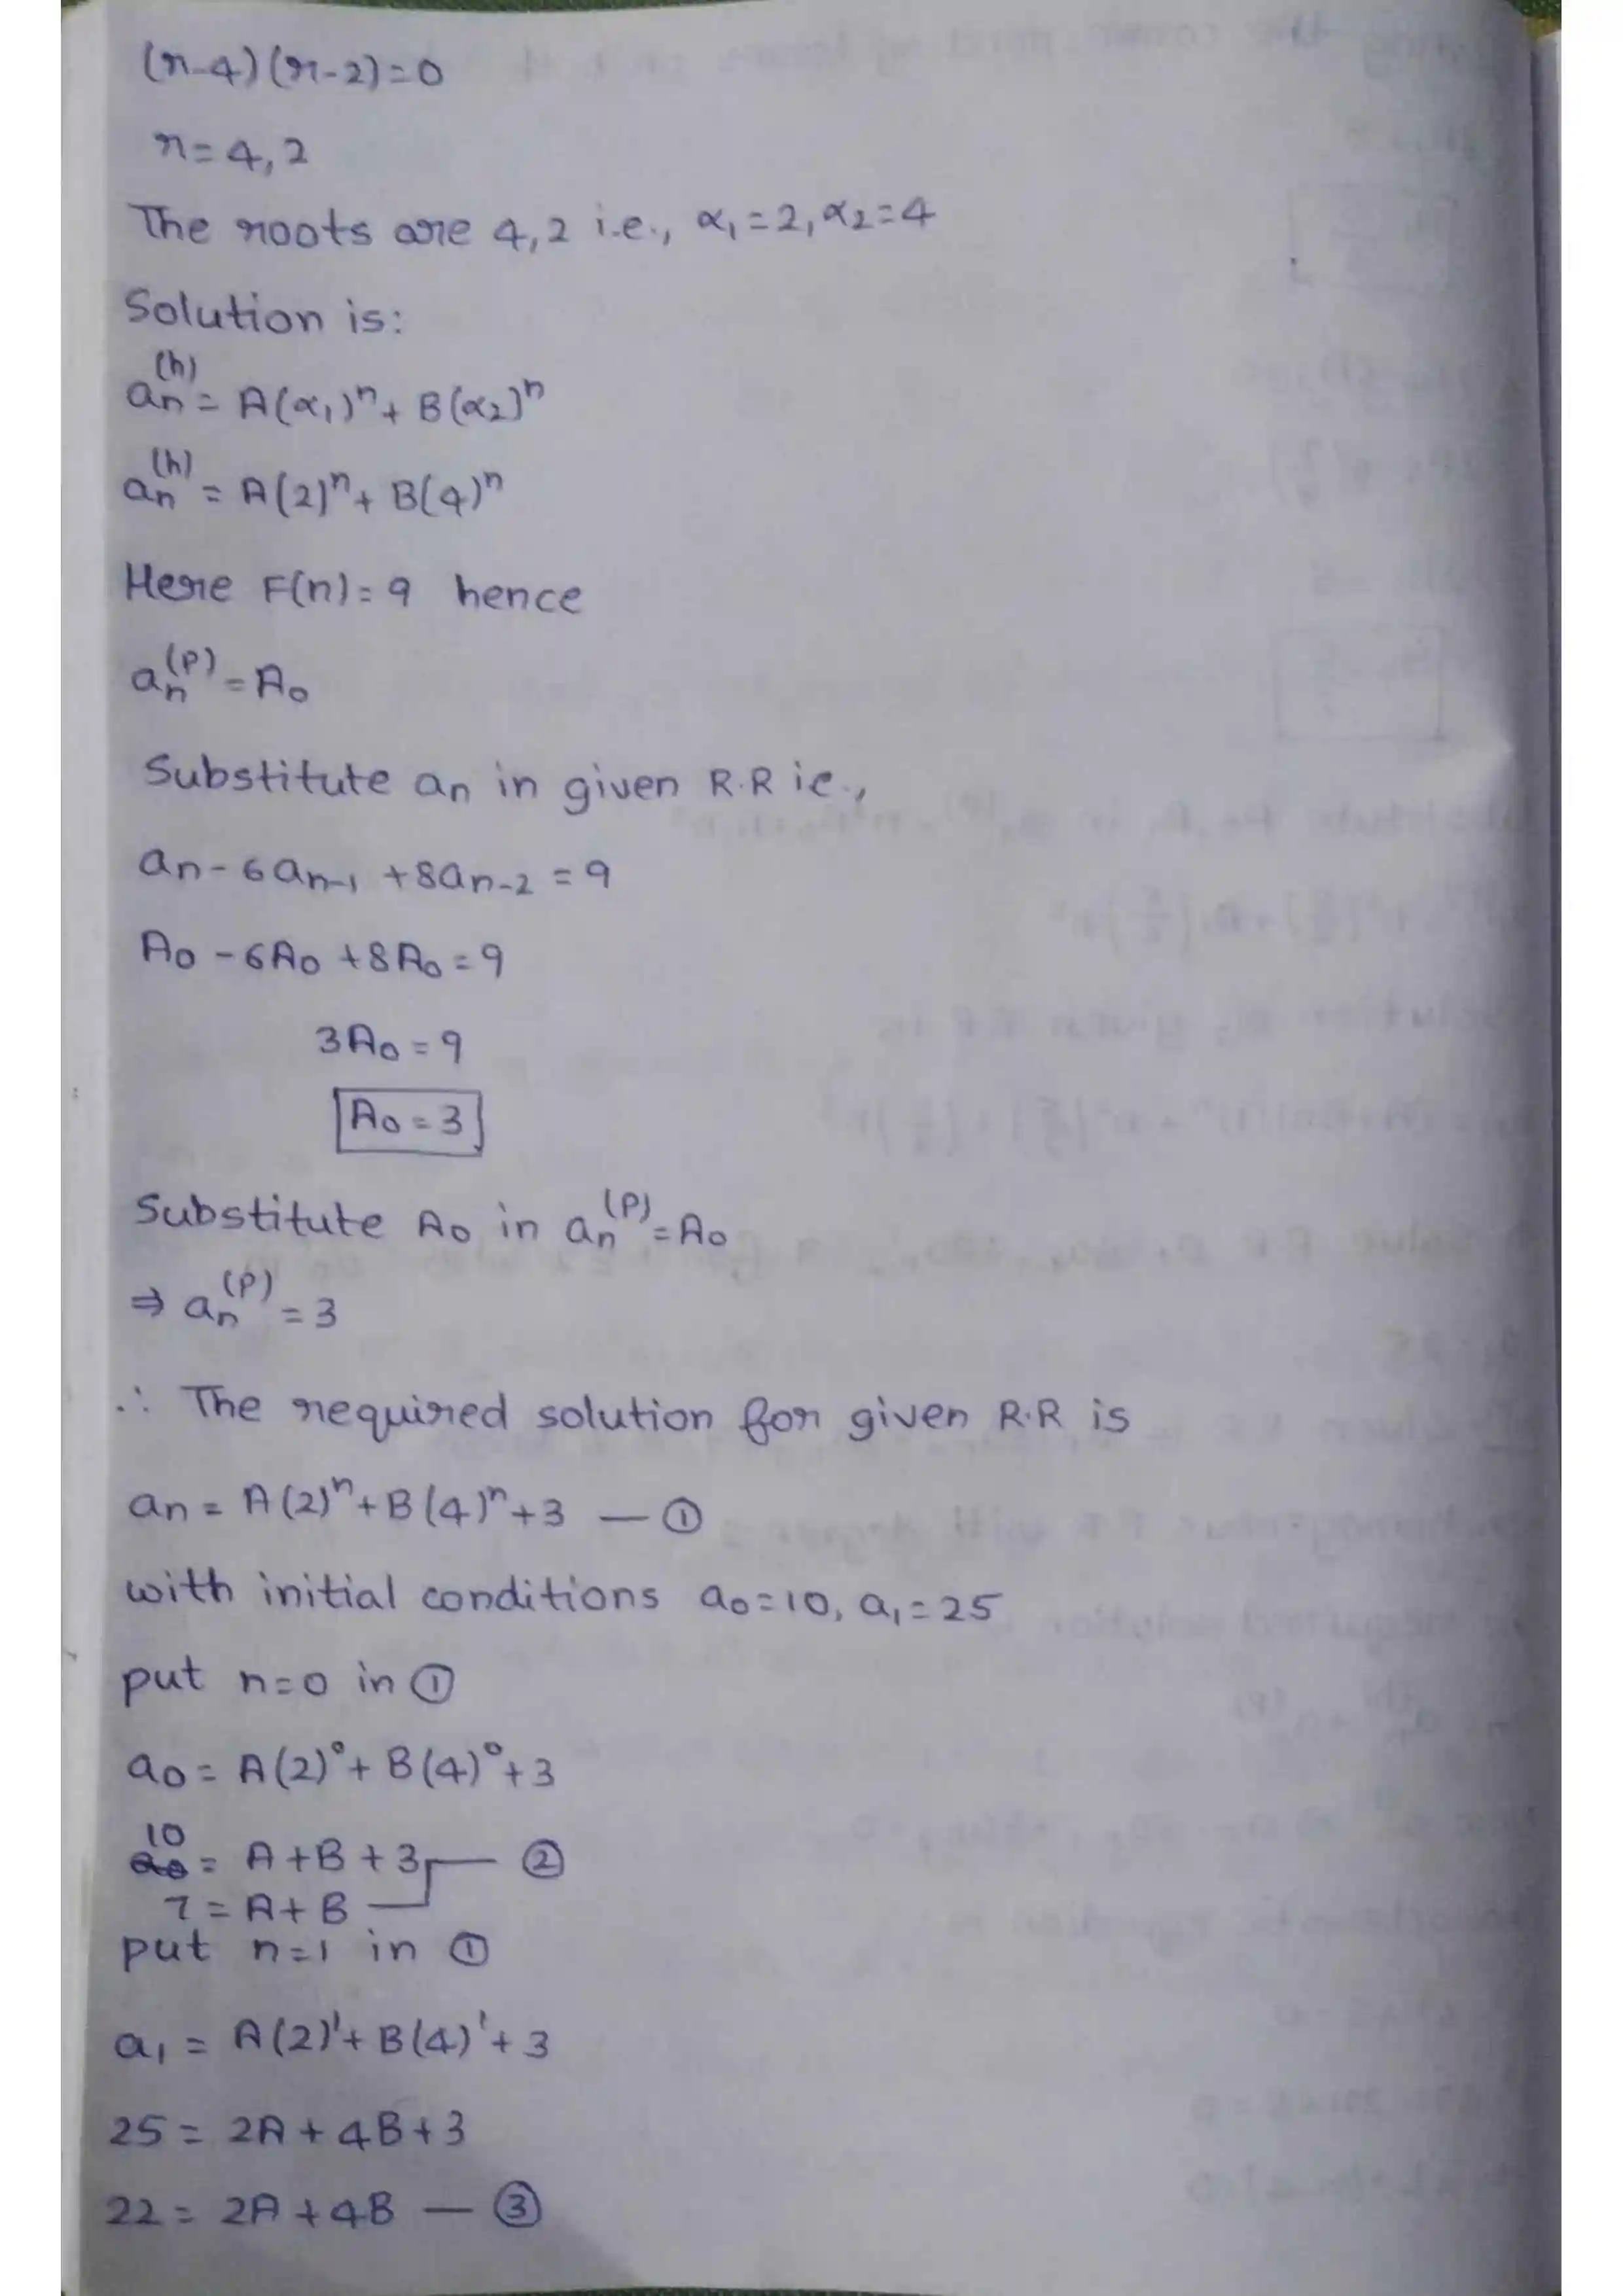 (r-4)(r-2)=0
r=4,2
The roots are 4,2 i.e., α₁=2, α₂=4
Solution is:
aₙ⁽ʰ⁾ = A(α₁)ⁿ + B(α₂)ⁿ
aₙ⁽ʰ⁾ = A(2)ⁿ + B(4)ⁿ
Here F(n)=9 hence
aₙ⁽ᵖ⁾ = A₀
Substitute aₙ in given R.R ie.,
aₙ - 6aₙ₋₁ + 8aₙ₋₂ = 9
A₀ - 6A₀ + 8A₀ = 9
3A₀ = 9
A₀ = 3
Substitute A₀ in aₙ⁽ᵖ⁾ = A₀
⇒ aₙ⁽ᵖ⁾ = 3
∴ The required solution for given R.R is
aₙ = A(2)ⁿ + B(4)ⁿ + 3 — ①
with initial conditions a₀=10, a₁=25
put n=0 in ①
a₀ = A(2)⁰ + B(4)⁰ + 3
10 = A+B+3 — ②
7 = A+B
put n=1 in ①
a₁ = A(2)¹ + B(4)¹ + 3
25 = 2A + 4B + 3
22 = 2A + 4B — ③